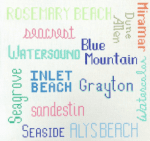 ROSEMARY BEACH
seacrest
Dune Allen
Miramar
WATERSOUND
Blue Mountain
INLET BEACH
Grayton
Seagrove
Watercolor
sandestin
SEASIDE
ALYS BEACH